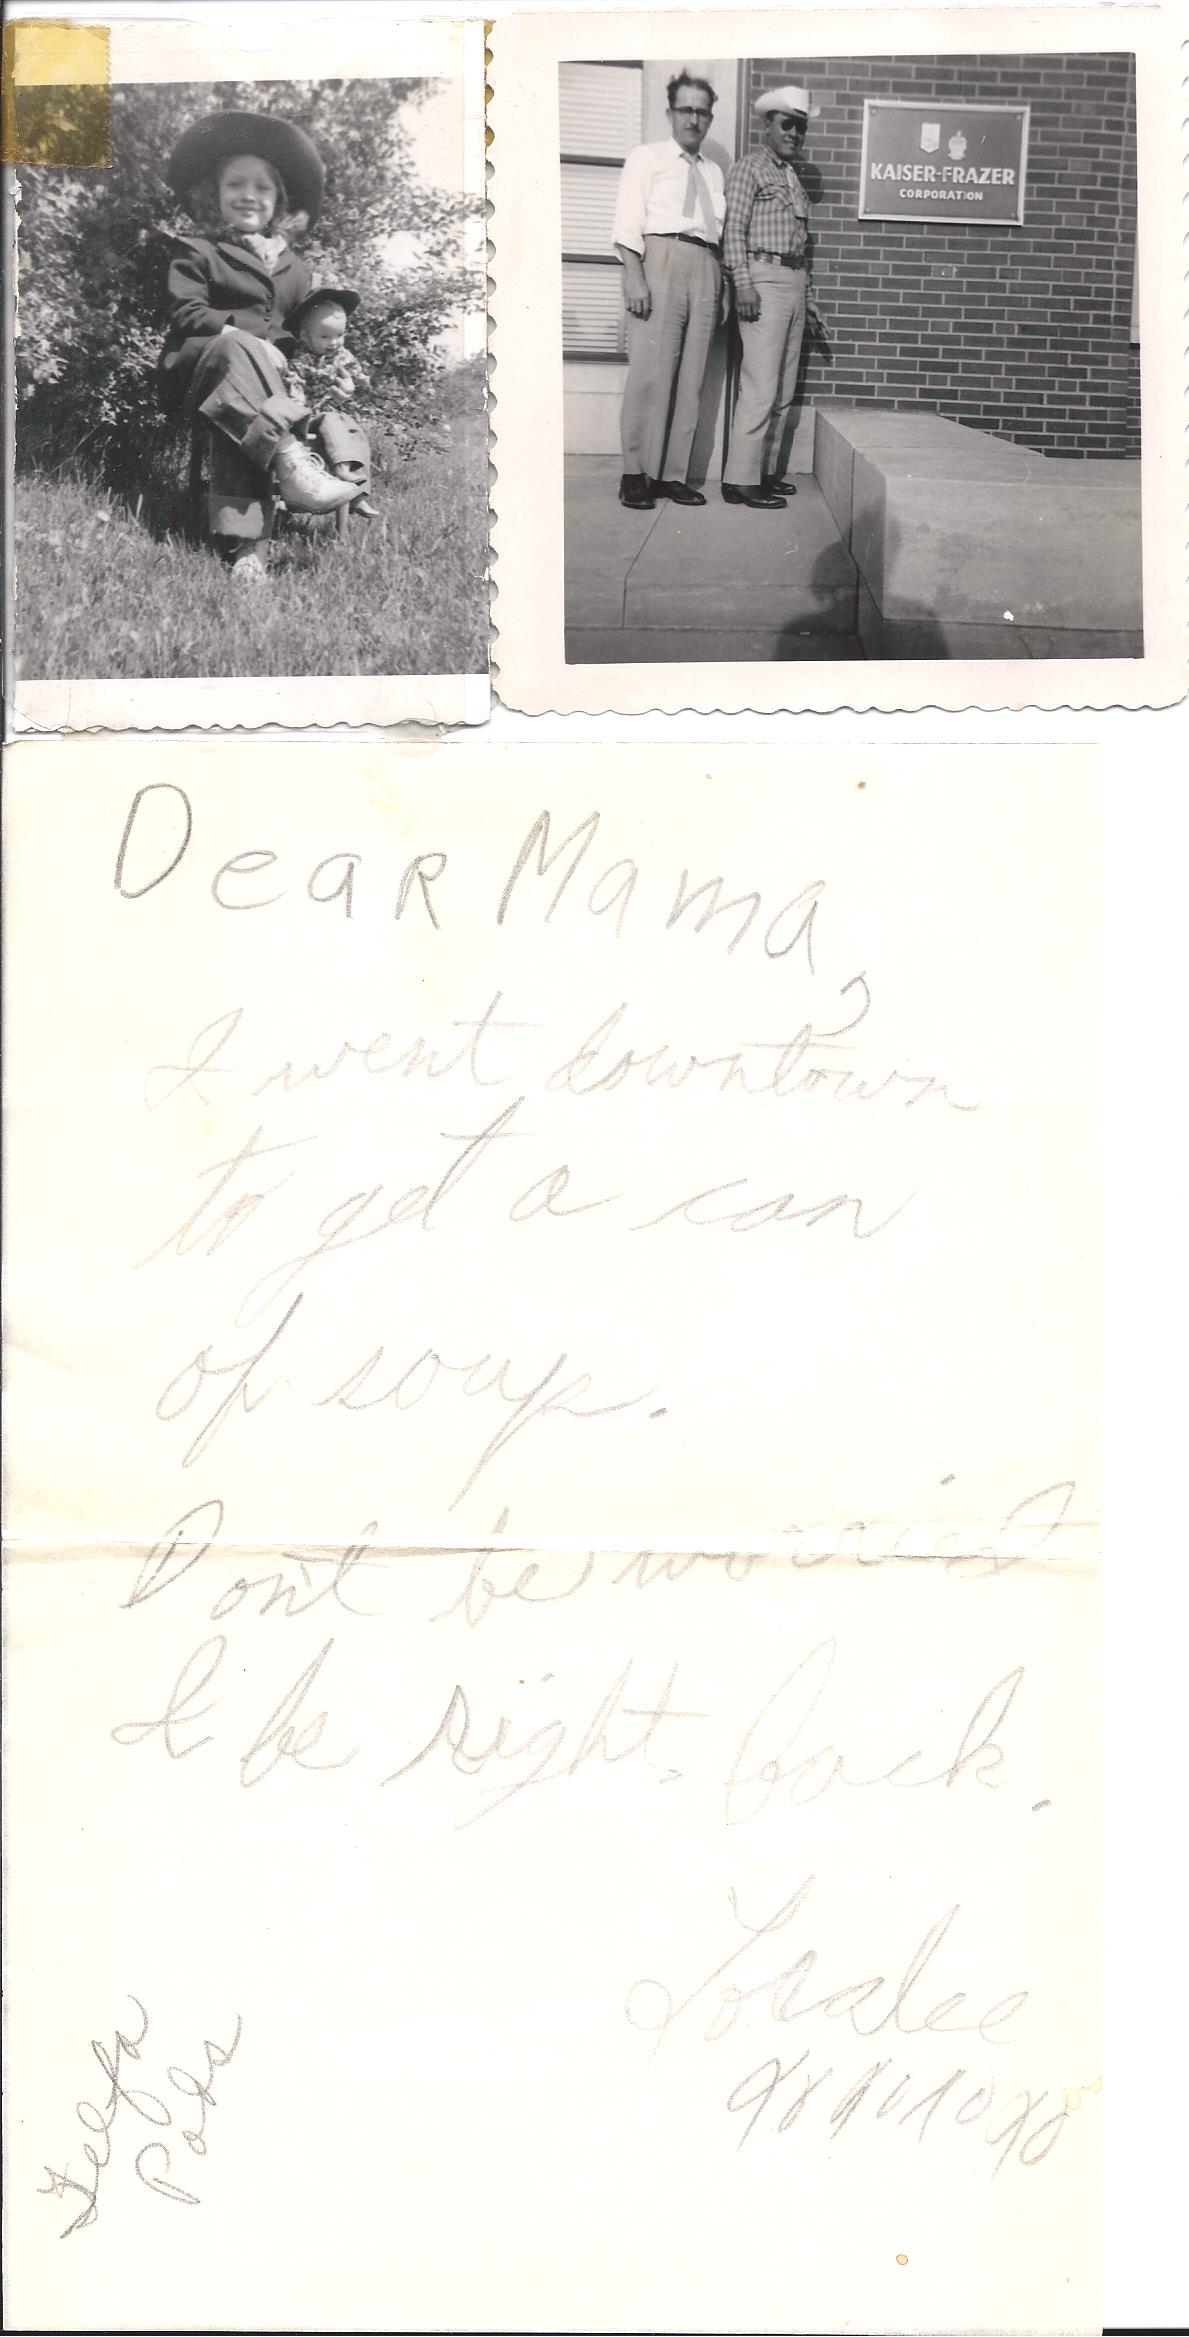 KAISER-FRAZER
CORPORATION
Dear Mama,
I went downtown
to get a can
of soup.
Don't be worried
I be right back.
Loralee